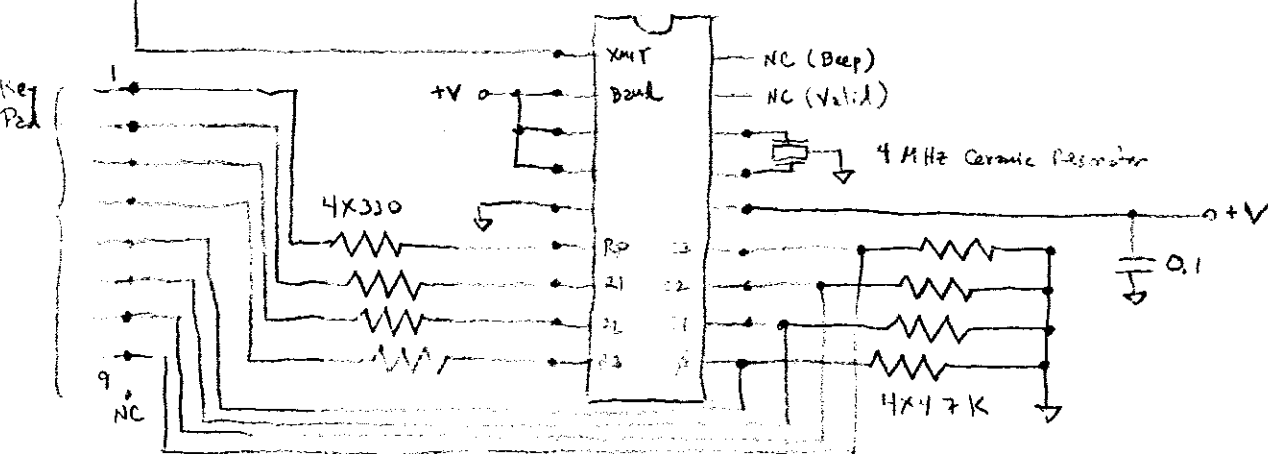 Key
Pad
1
9
NC
+V
4X330
XMIT
Baud
R0
R3
NC (Beep)
NC (Valid)
4 MHz Ceramic Resonator
+V
0.1
4X47K